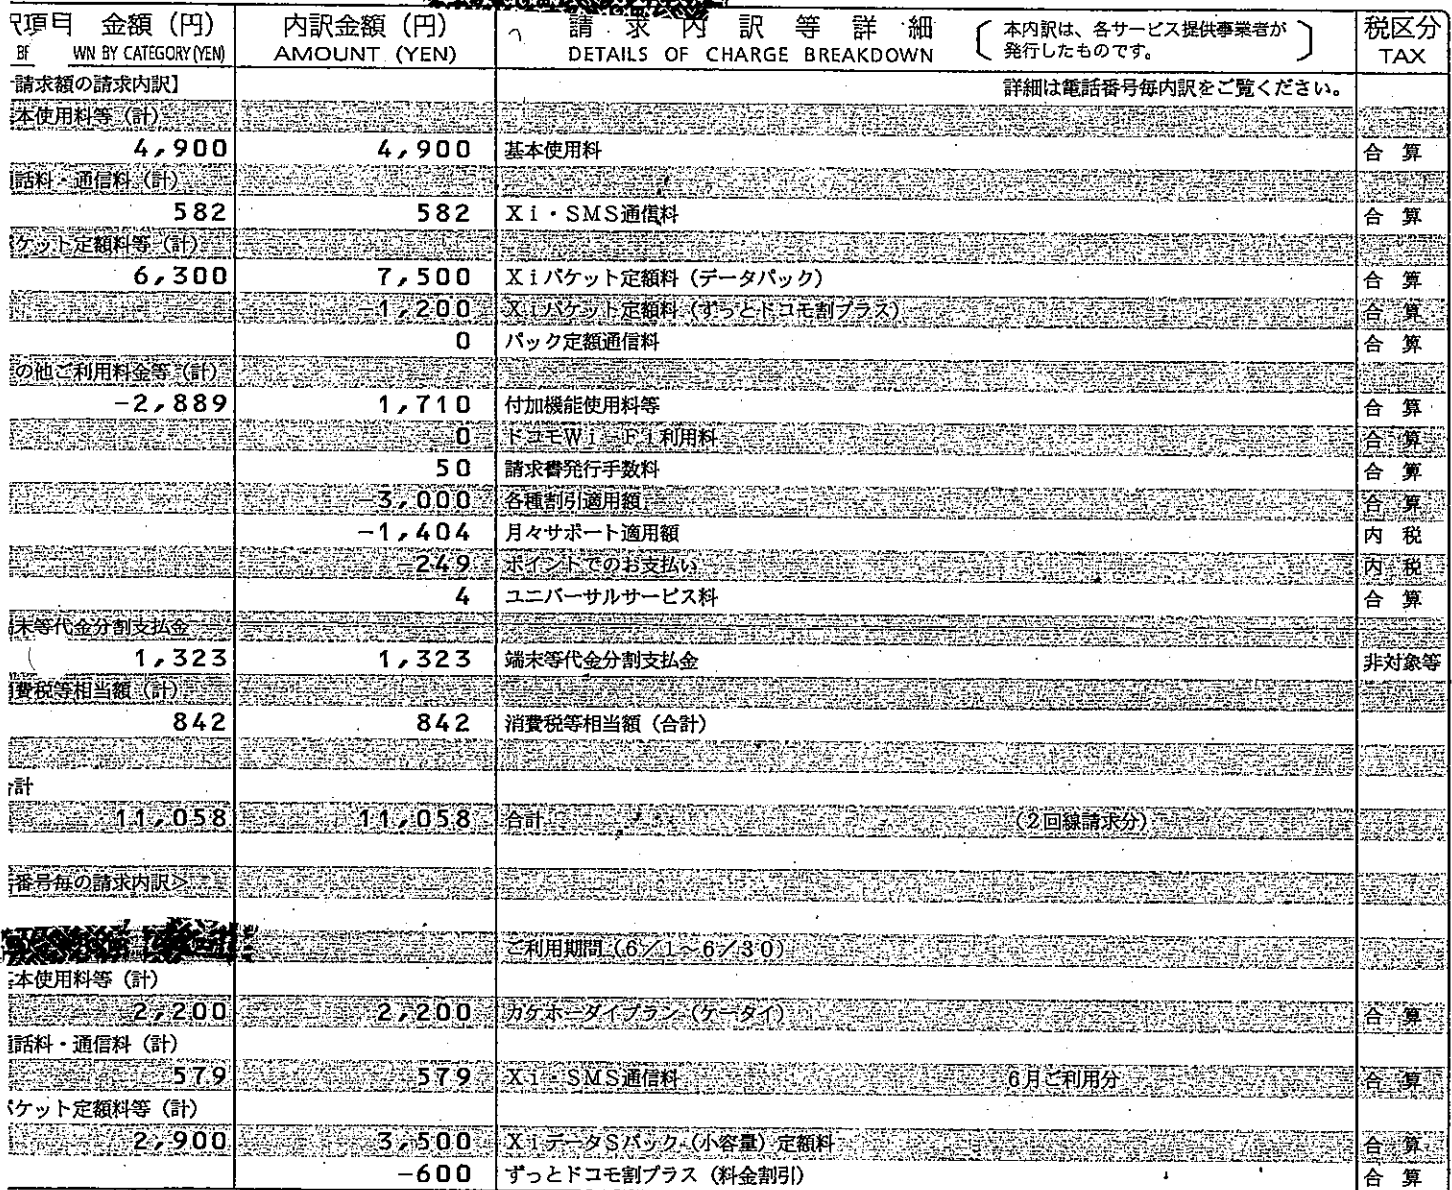 訳項目 金額（円） 内訳金額（円） 請求内訳等詳細 本内訳は、各サービス提供事業者が発行したものです。 税区分
WN BY CATEGORY(YEN) AMOUNT (YEN) DETAILS OF CHARGE BREAKDOWN TAX
請求額の請求内訳】 詳細は電話番号毎内訳をご覧ください。
本使用料等（計）
4,900 4,900 基本使用料 合算
話料・通信料（計）
582 582 Xi・SMS通信料 合算
ケット定額料等（計）
6,300 7,500 Xiパケット定額料（データパック） 合算
-1,200 Xiパケット定額料（ずっとドコモ割プラス） 合算
0 パック定額通信料 合算
の他ご利用料金等（計）
-2,889 1,710 付加機能使用料等 合算
0 ドコモWi-Fi利用料 合算
50 請求書発行手数料 合算
-3,000 各種割引適用額 合算
-1,404 月々サポート適用額 内税
-249 ポイントでのお支払い 内税
4 ユニバーサルサービス料 合算
末等代金分割支払金
1,323 1,323 端末等代金分割支払金 非対象等
費税等相当額（計）
842 842 消費税等相当額（合計）
計
11,058 11,058 合計 （2回線請求分）
番号毎の請求内訳＞
ご利用期間（6/1～6/30）
本使用料等（計）
2,200 2,200 カケホーダイプラン（ケータイ） 合算
話料・通信料（計）
579 579 Xi・SMS通信料 6月ご利用分 合算
ケット定額料等（計）
2,900 3,500 XiデータSパック（小容量）定額料 合算
-600 ずっとドコモ割プラス（料金割引） 合算